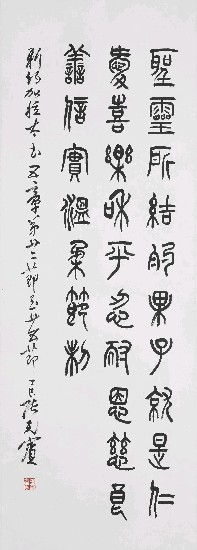 聖靈所結的果子就是仁
愛喜樂和平忍耐恩慈良
善信實溫柔節制
新約加拉太书五章第廿二節至廿三節
丁巳